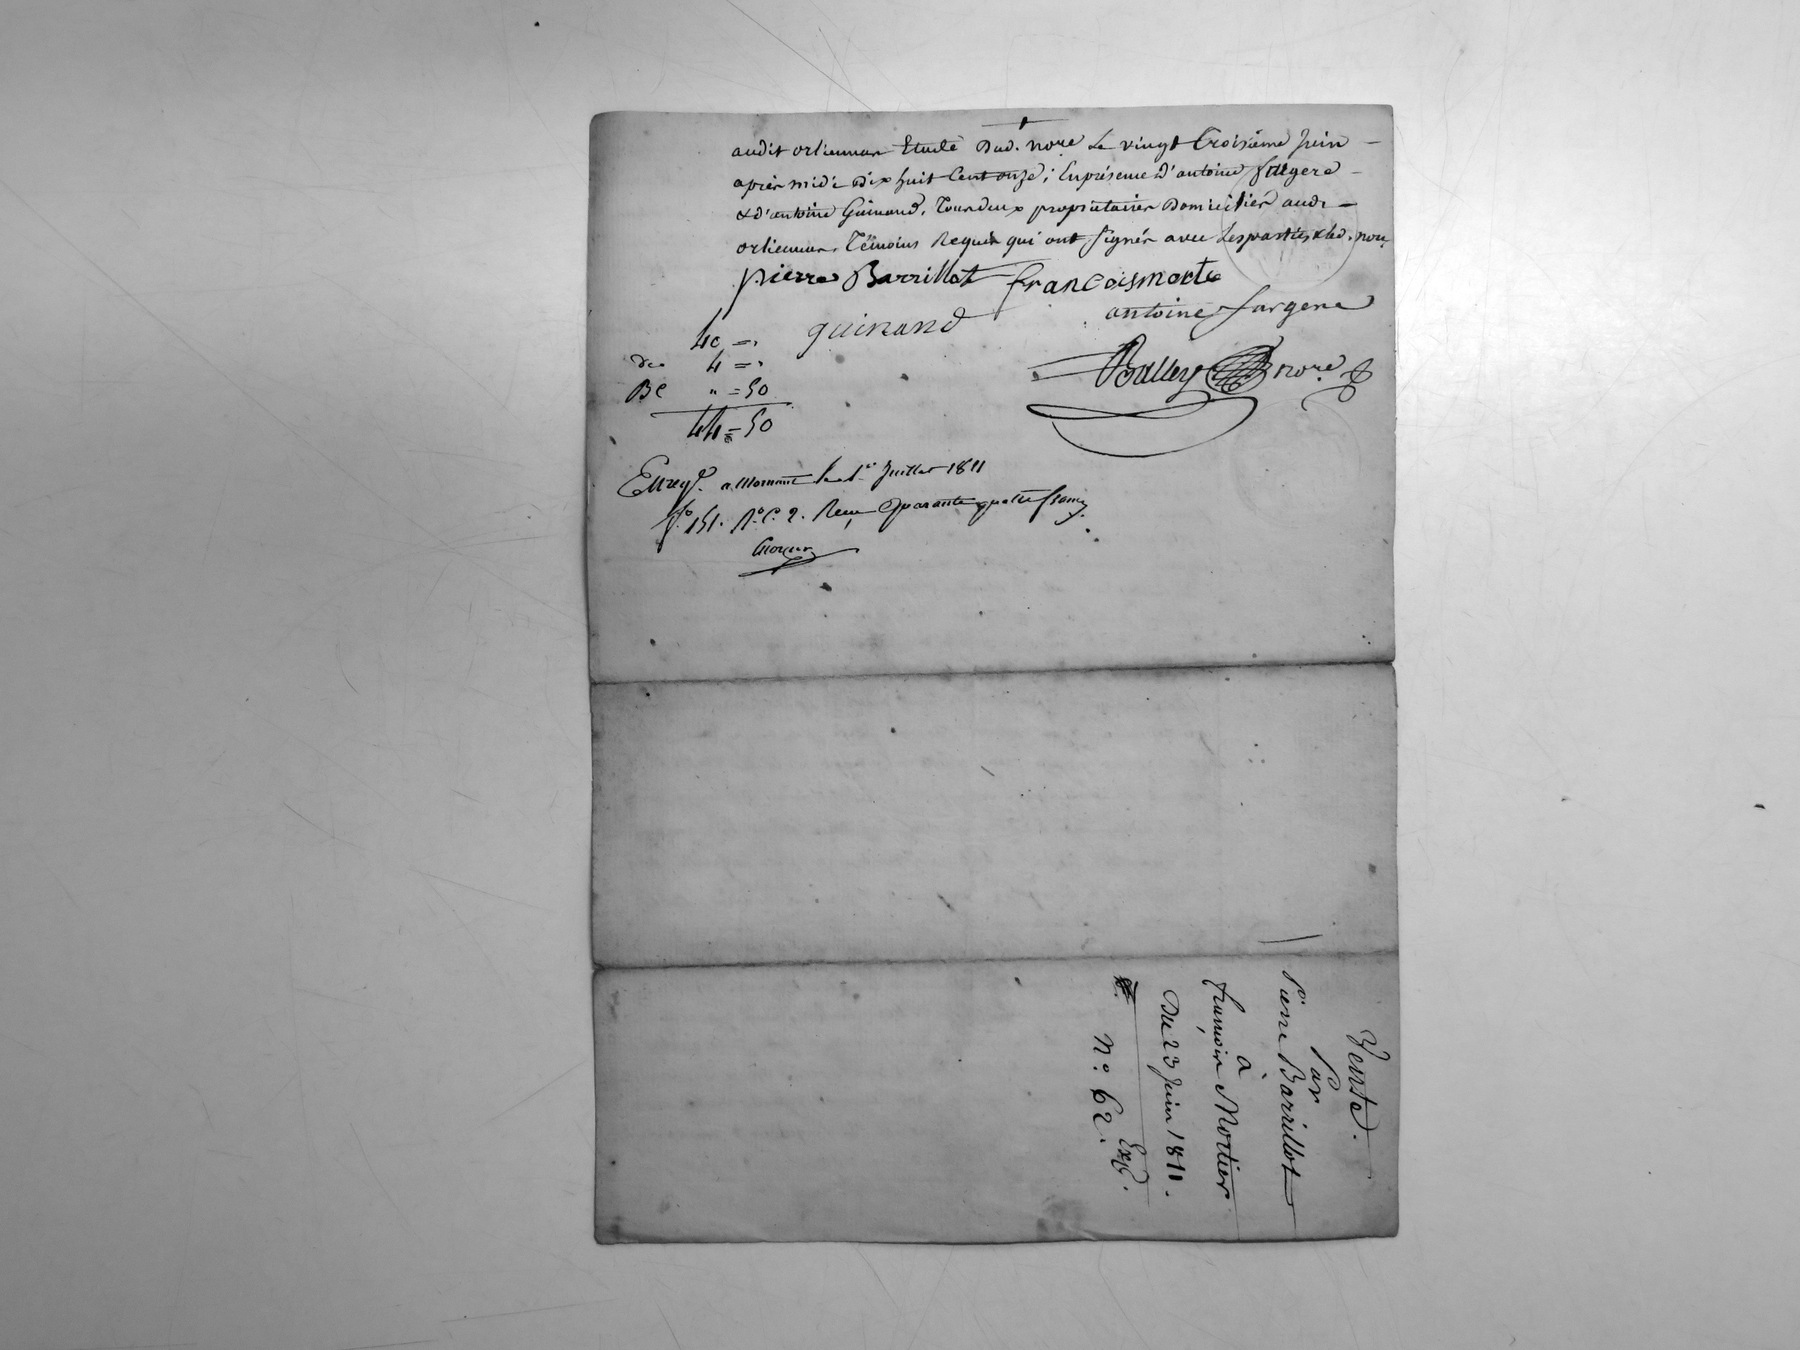 audit orlienas Etude Dud. nore Le vingt Troisième Juin
après midi Dix huit Cent onze ; En présence d'antoine fargere
& d'antoine Guinand, Tous deux propriétaires Domiciliés aud.
orlienas, Témoins Requis qui ont signés avec Les parties & led. nore
pierre Barrillot francoismortie
antoine fargere
guinand
40 = "
dec 4 = "
Balley nore
BC " = 50
44 = 50
Enregé. a Mornant le 1er Juillet 1811
fo. 151. Ro. C. 2. Reçu Quarante quatre francs
Vente.
Par
Pierre Barrillot
à
françois Mortier
Du 23 Juin 1811.
Exp.
N.o 62.